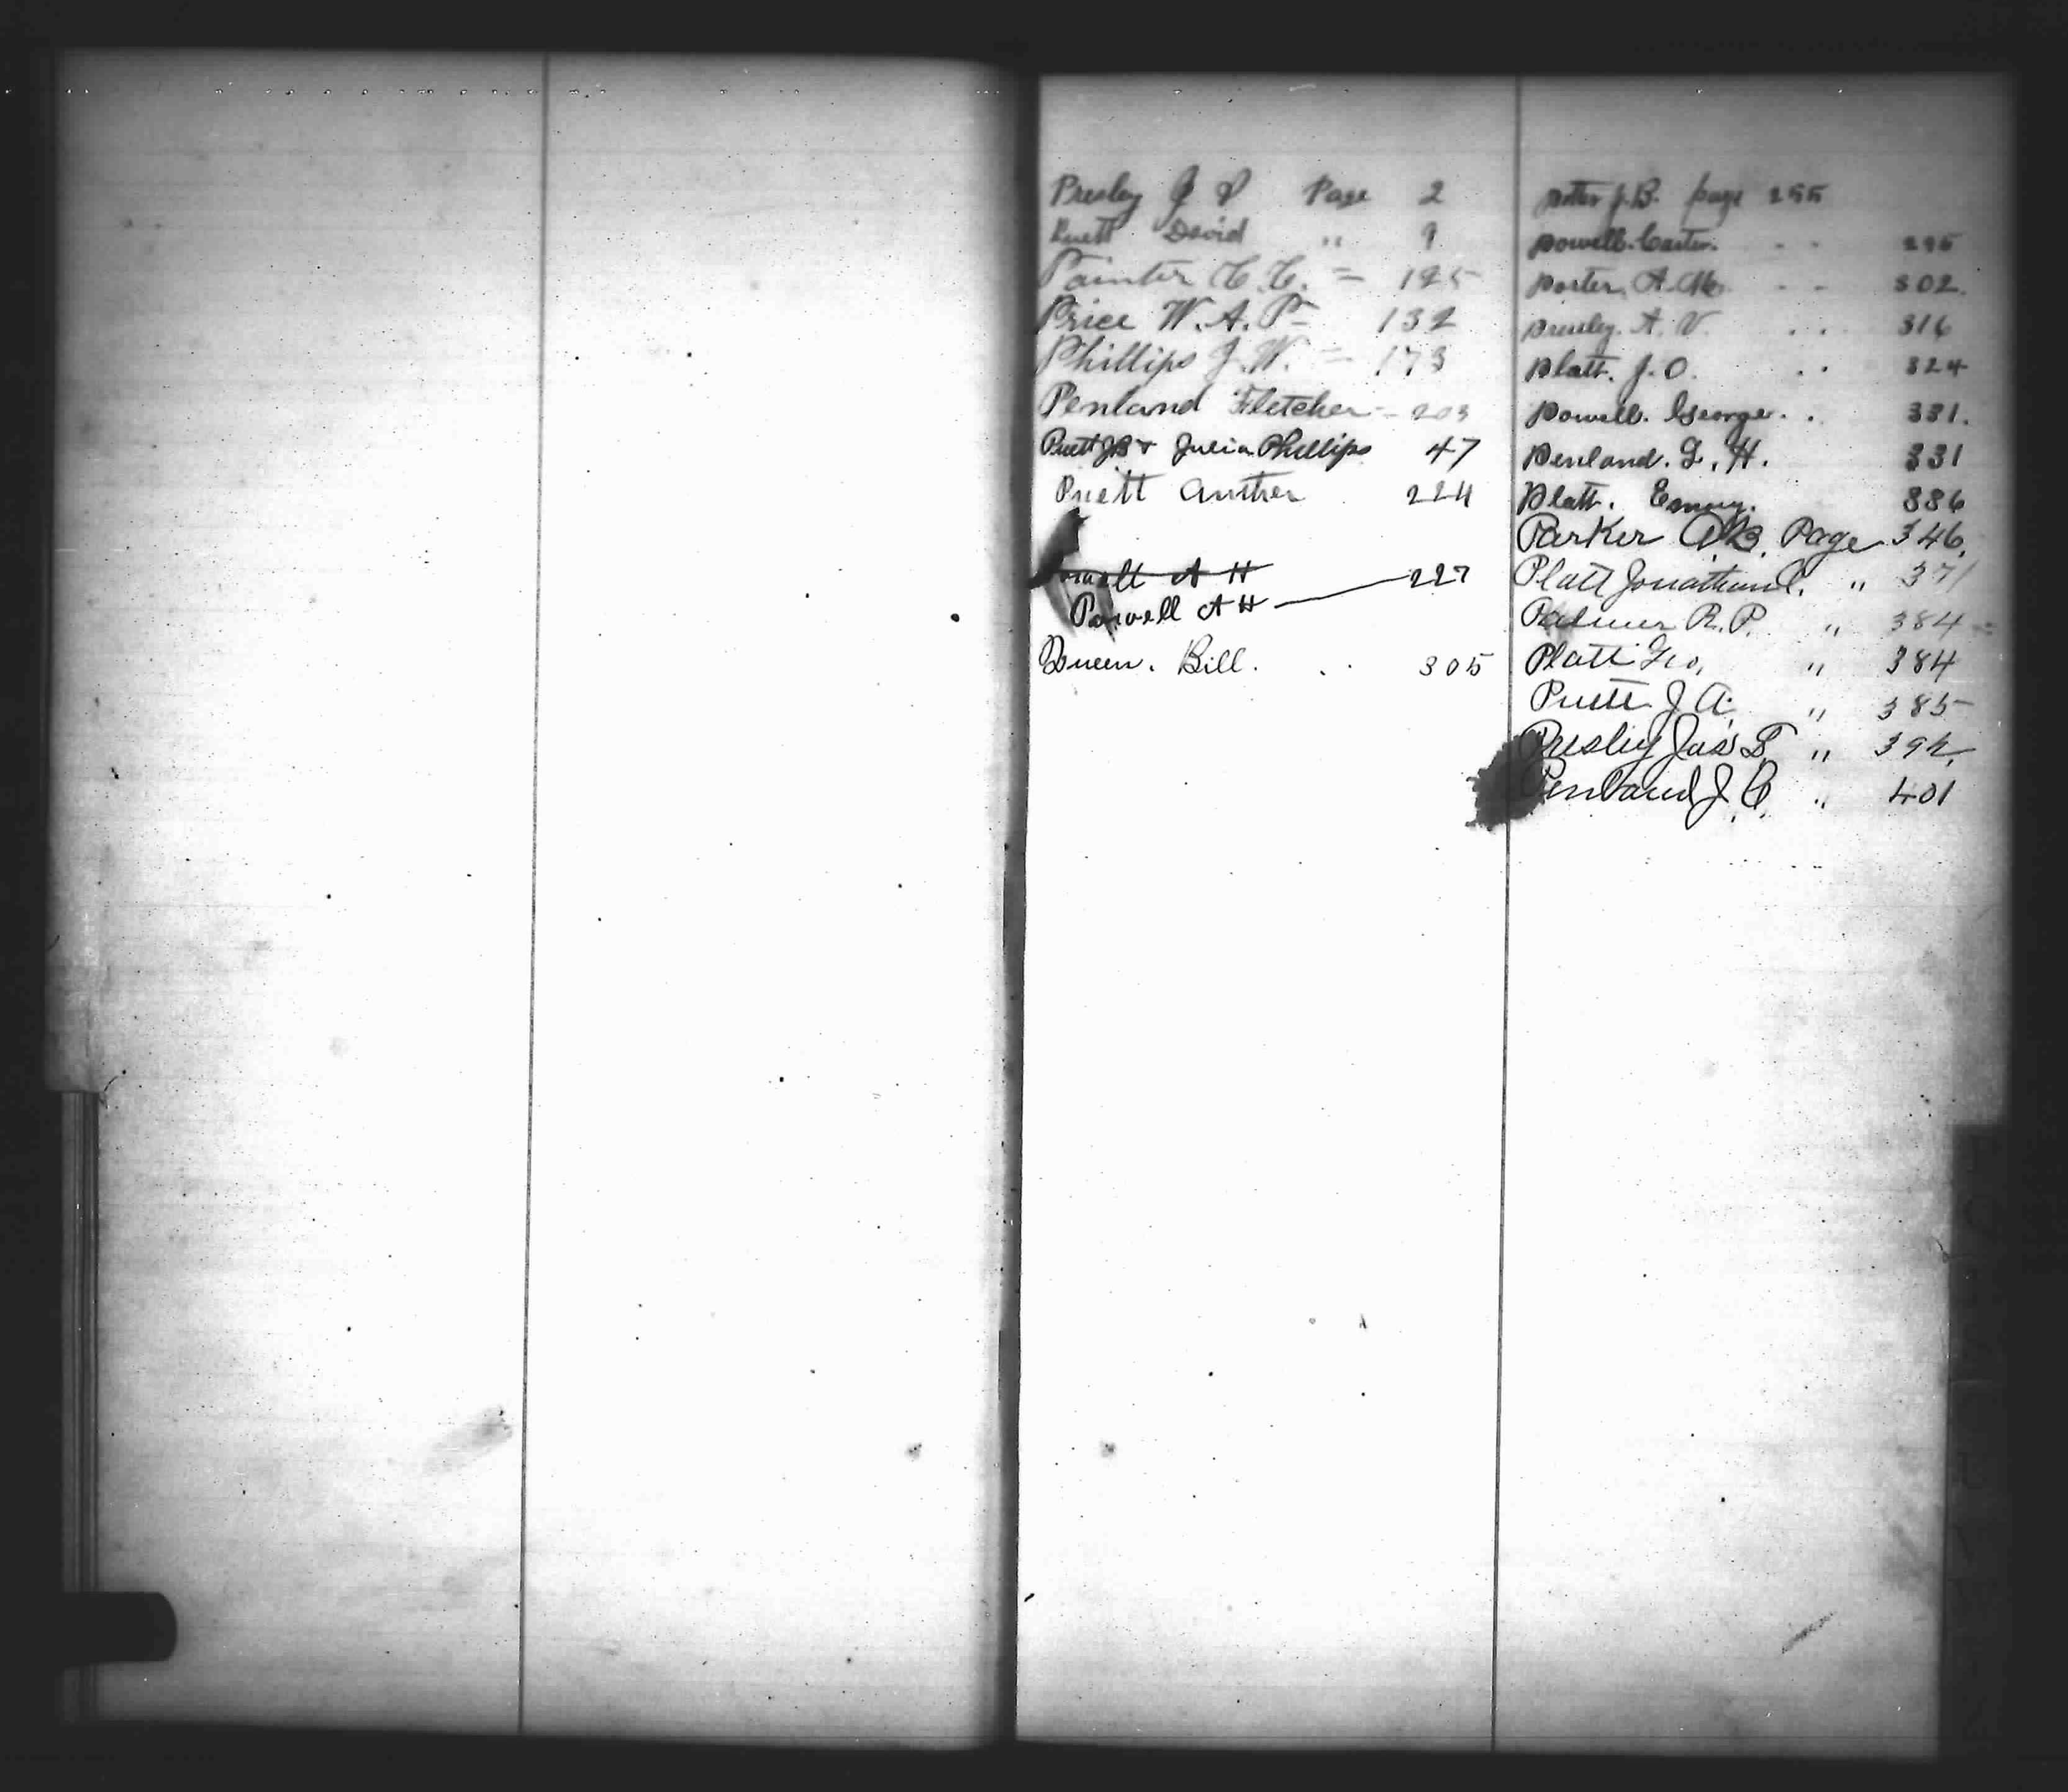 Presley J P Page 2
Pruett David " 9
Painter C. C. = 125
Price W. A. P = 132
Phillips J. W. = 173
Penland Fletcher - 203
Pruett JB & Julia Phillips 47
Pruett Anther 224
A H 227
Powell A H
Queen. Bill. . . 305
Potter J. B. page 255
Powell. Carter. . . 295
Porter, A. M. - - 302.
Presley. A. V. . . 316
Platt. J. O. . . 324
Powell. George. . . 331.
Penland. L. H. 331
Platt. 336
Parker A. B. Page 346,
Platt Jonathan L. " 371
Palmer R. P. " 384
Platt Geo, " 384
Pruett J A. " 385
Presley Jas T. " 392,
Penland J. C. " 401